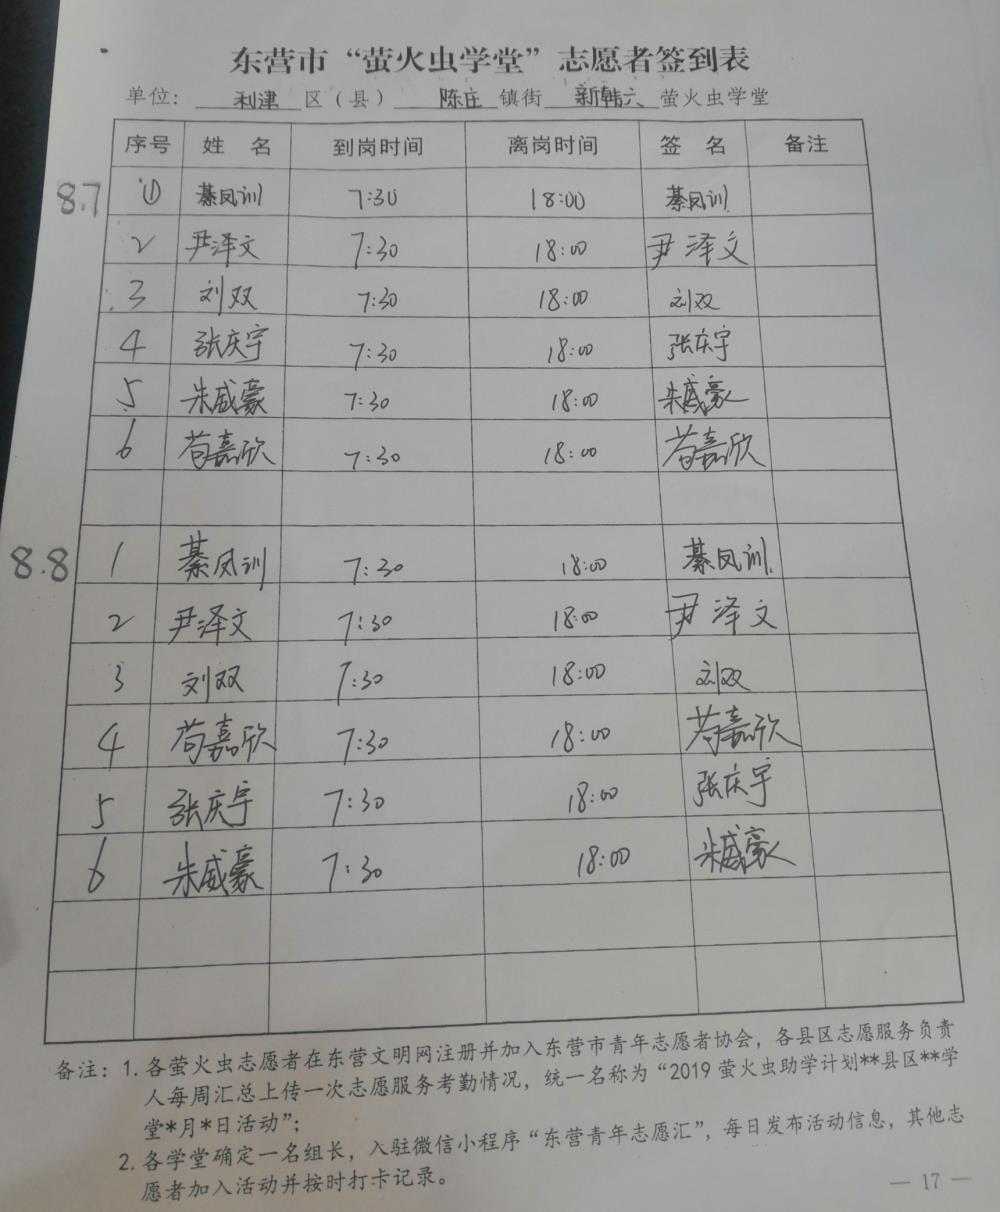 东营市“萤火虫学堂”志愿者签到表
单位: 利津 区(县) 陈庄 镇街 新韩六 萤火虫学堂
序号 姓 名 到岗时间 离岗时间 签 名 备注
8.7 ① 綦凤训 7:30 18:00 綦凤训
2 尹泽文 7:30 18:00 尹泽文
3 刘双 7:30 18:00 刘双
4 张庆宇 7:30 18:00 张庆宇
5 朱威豪 7:30 18:00 朱威豪
6 苟嘉欣 7:30 18:00 苟嘉欣
8.8 1 綦凤训 7:30 18:00 綦凤训
2 尹泽文 7:30 18:00 尹泽文
3 刘双 7:30 18:00 刘双
4 苟嘉欣 7:30 18:00 苟嘉欣
5 张庆宇 7:30 18:00 张庆宇
6 朱威豪 7:30 18:00 朱威豪
备注: 1. 各萤火虫志愿者在东营文明网注册并加入东营市青年志愿者协会,各县区志愿服务负责
人每周汇总上传一次志愿服务考勤情况,统一名称为“2019萤火虫助学计划**县区**学
堂*月*日活动”;
2. 各学堂确定一名组长,入驻微信小程序“东营青年志愿汇”,每日发布活动信息,其他志
愿者加入活动并按时打卡记录。
— 17 —